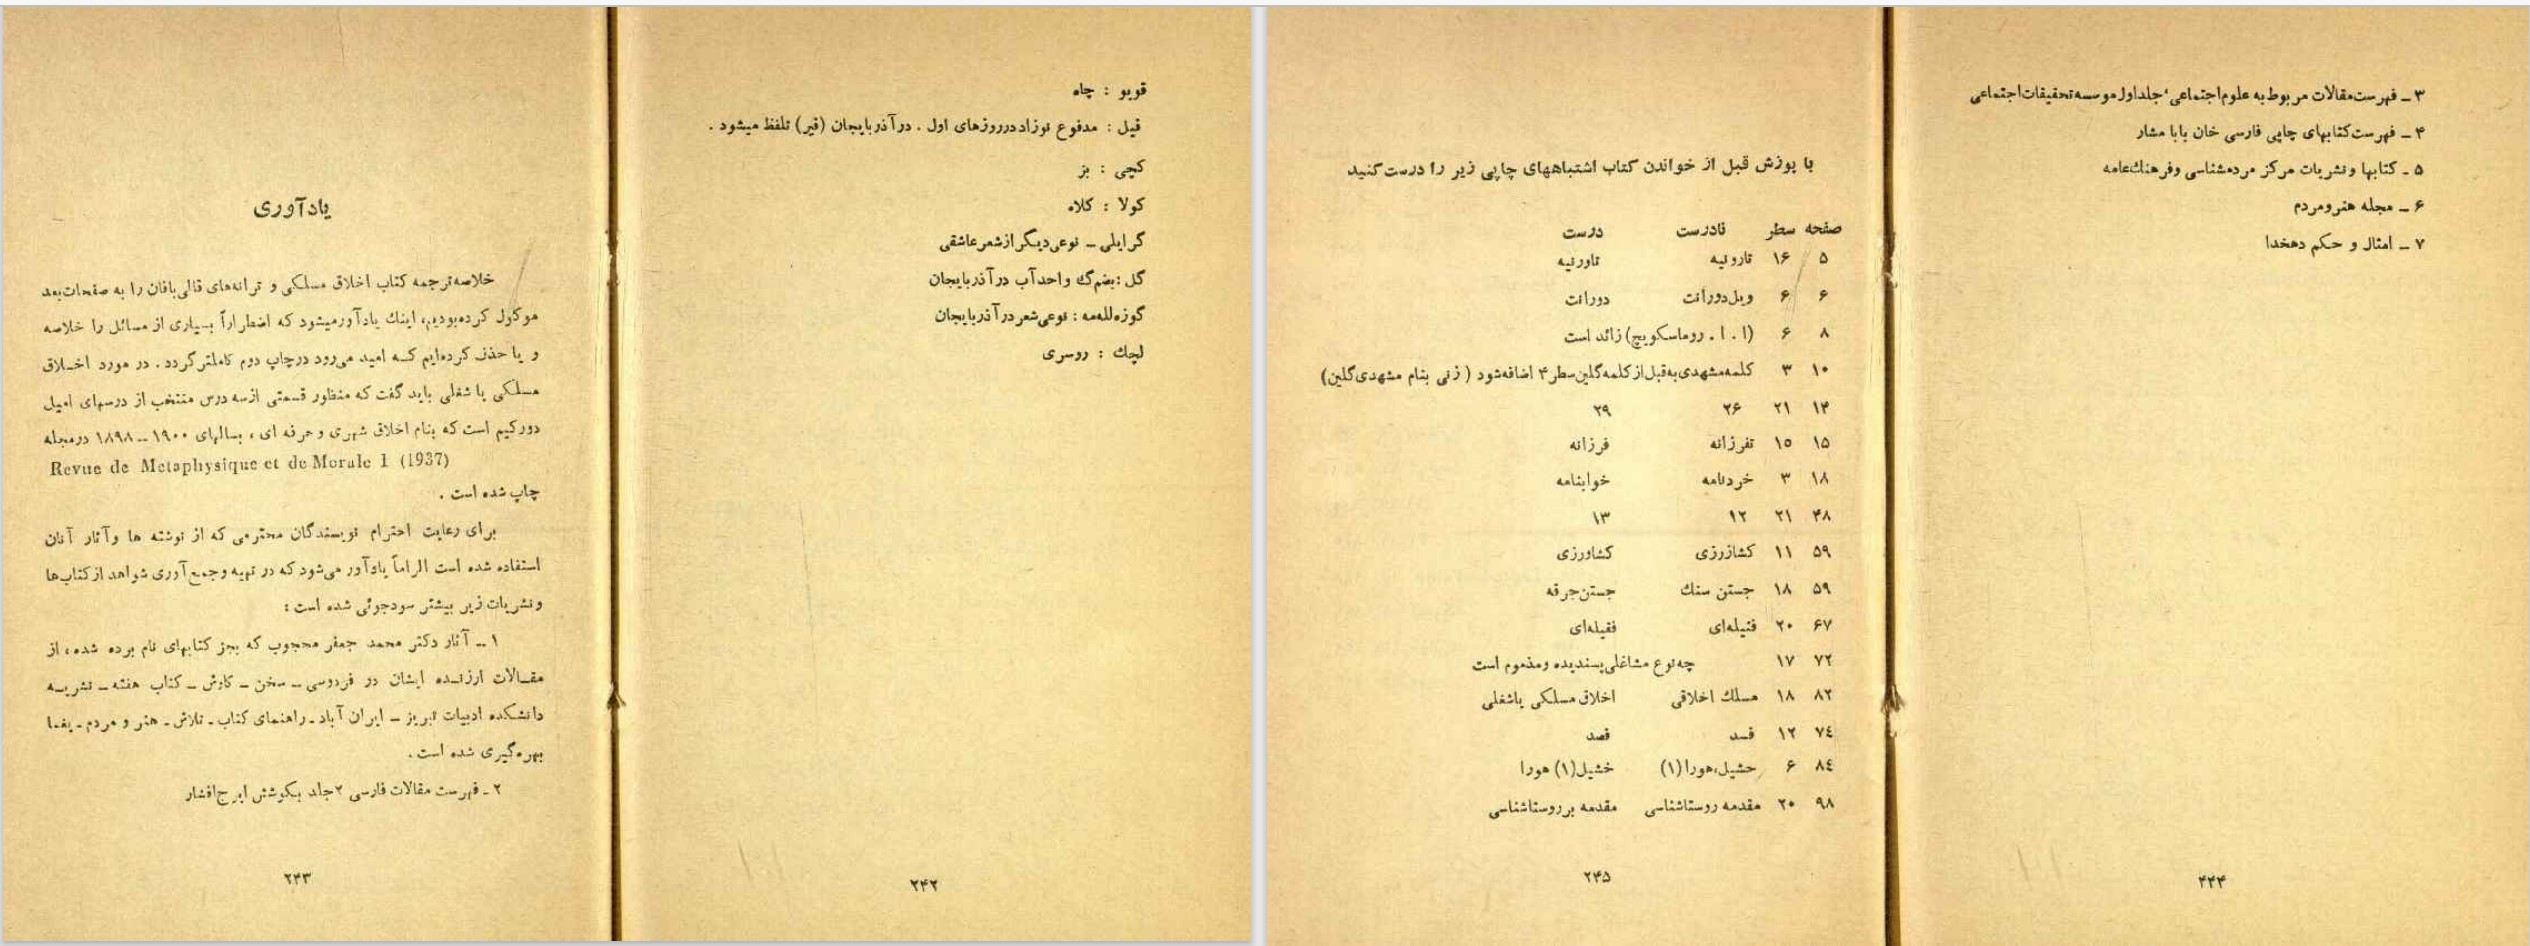 قویو : چاه
قیل : مدفوع نوزاد در روزهای اول . در آذربایجان (قیر) تلفظ میشود .
کچی : بز
کولا : کلاه
گرایلی ـ نوعی دیگر از شعر عاشقی
گل : بضم گ واحد آب در آذربایجان
گوزه‌لله‌مه : نوعی شعر در آذربایجان
لچك : روسری
۲۴۲
یادآوری
خلاصه ترجمه کتاب اخلاق مسلکی و ترانه‌های قالی‌بافان را به صفحات بعد
موکول کرده‌بودیم، اینك یادآور میشود که اضطراراً بسیاری از مسائل را خلاصه
و یا حذف کرده‌ایم کـه امید می‌رود در چاپ دوم کاملتر گردد . در مورد اخـلاق
مسلکی یا شغلی باید گفت که منظور قسمتی از سه درس منتخب از درسهای امیل
دورکیم است که بنام اخلاق شهری و حرفه ای ، بسالهای ۱۹۰۰ ـ ۱۸۹۸ در مجله
Revue de Metaphysique et de Morale 1 (1937)
چاپ شده است .
برای رعایت احترام نویسندگان محترمی که از نوشته ها و آثار آنان
استفاده شده است الزاماً یادآور می‌شود که در تهیه و جمع آوری شواهد از کتاب‌ها
و نشریات زیر بیشتر سودجوئی شده است :
۱ ـ آثار دکتر محمد جعفر محجوب که بجز کتابهای نام برده شده ، از
مقـالات ارزنـده ایشان در فردوسی ـ سخن ـ کاوش ـ کتاب هفته ـ نشریـه
دانشکده ادبیات تبریز ـ ایران آباد ـ راهنمای کتاب ـ تلاش ـ هنر و مردم ـ یغما
بهره‌گیری شده است .
۲ ـ فهرست مقالات فارسی ۲ جلد بکوشش ایرج افشار
۲۴۳
۳ ـ فهرست مقالات مربوط به علوم اجتماعی، جلد اول موسسه تحقیقات اجتماعی
۴ ـ فهرست کتابهای چاپی فارسی خان بابا مشار
۵ ـ کتابها و نشریات مرکز مردمشناسی و فرهنك عامه
۶ ـ مجله هنر و مردم
۷ ـ امثال و حکم دهخدا
۴۴۴
با پوزش قبل از خواندن کتاب اشتباههای چاپی زیر را درست کنید
صفحه سطر نادرست درست
۵ ۱۶ تارونیه تاورنیه
۶ ۶ ویل دورانت دورانت
۸ ۶ (ا . ا . روماسکویچ) زائد است
۱۰ ۳ کلمه مشهدی به قبل از کلمه گلین سطر ۴ اضافه شود ( زنی بنام مشهدی گلین)
۱۴ ۲۱ ۲۶ ۲۹
۱۵ ۱۵ تفرزانه فرزانه
۱۸ ۳ خردنامه خوابنامه
۴۸ ۲۱ ۱۲ ۱۳
۵۹ ۱۱ کشازرزی کشاورزی
۵۹ ۱۸ جستن سنك جستن جرقه
۶۷ ۲۰ فتیله‌ای فقیله‌ای
۷۲ ۱۷ چه نوع مشاغلی پسندیده و مذموم است
۸۲ ۱۸ مسلك اخلاقی اخلاق مسلکی یا شغلی
۷٤ ۱۲ فسد فصد
۸٤ ۶ حشیل، هورا (۱) خشیل (۱) هورا
۹۸ ۲۰ مقدمه روستاشناسی مقدمه بر روستاشناسی
۲۴۵